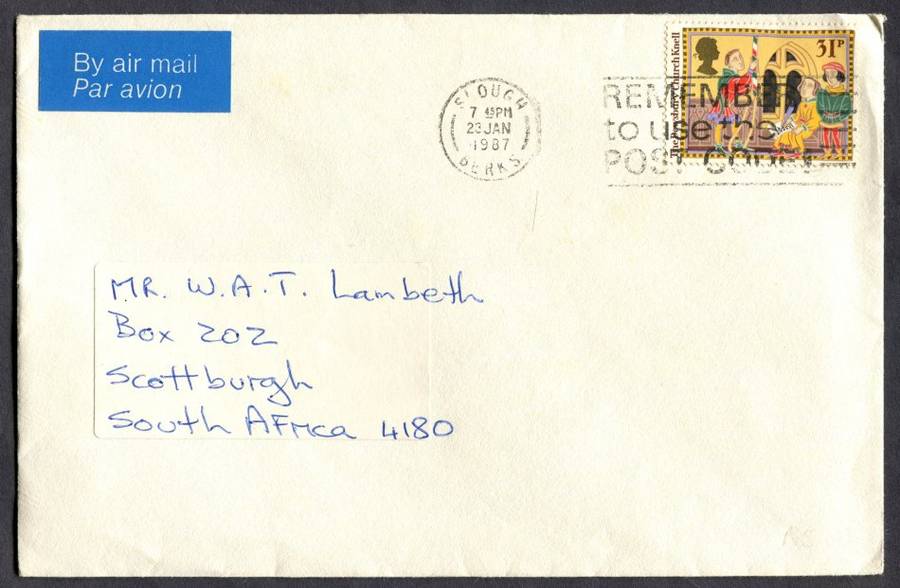 By air mail
Par avion
SLOUGH
7 45PM
23 JAN
1987
BERKS
REMEMBER
to use the
POST CODE
31P
MR. W.A.T. Lambeth
Box 202
Scottburgh
South Africa 4180